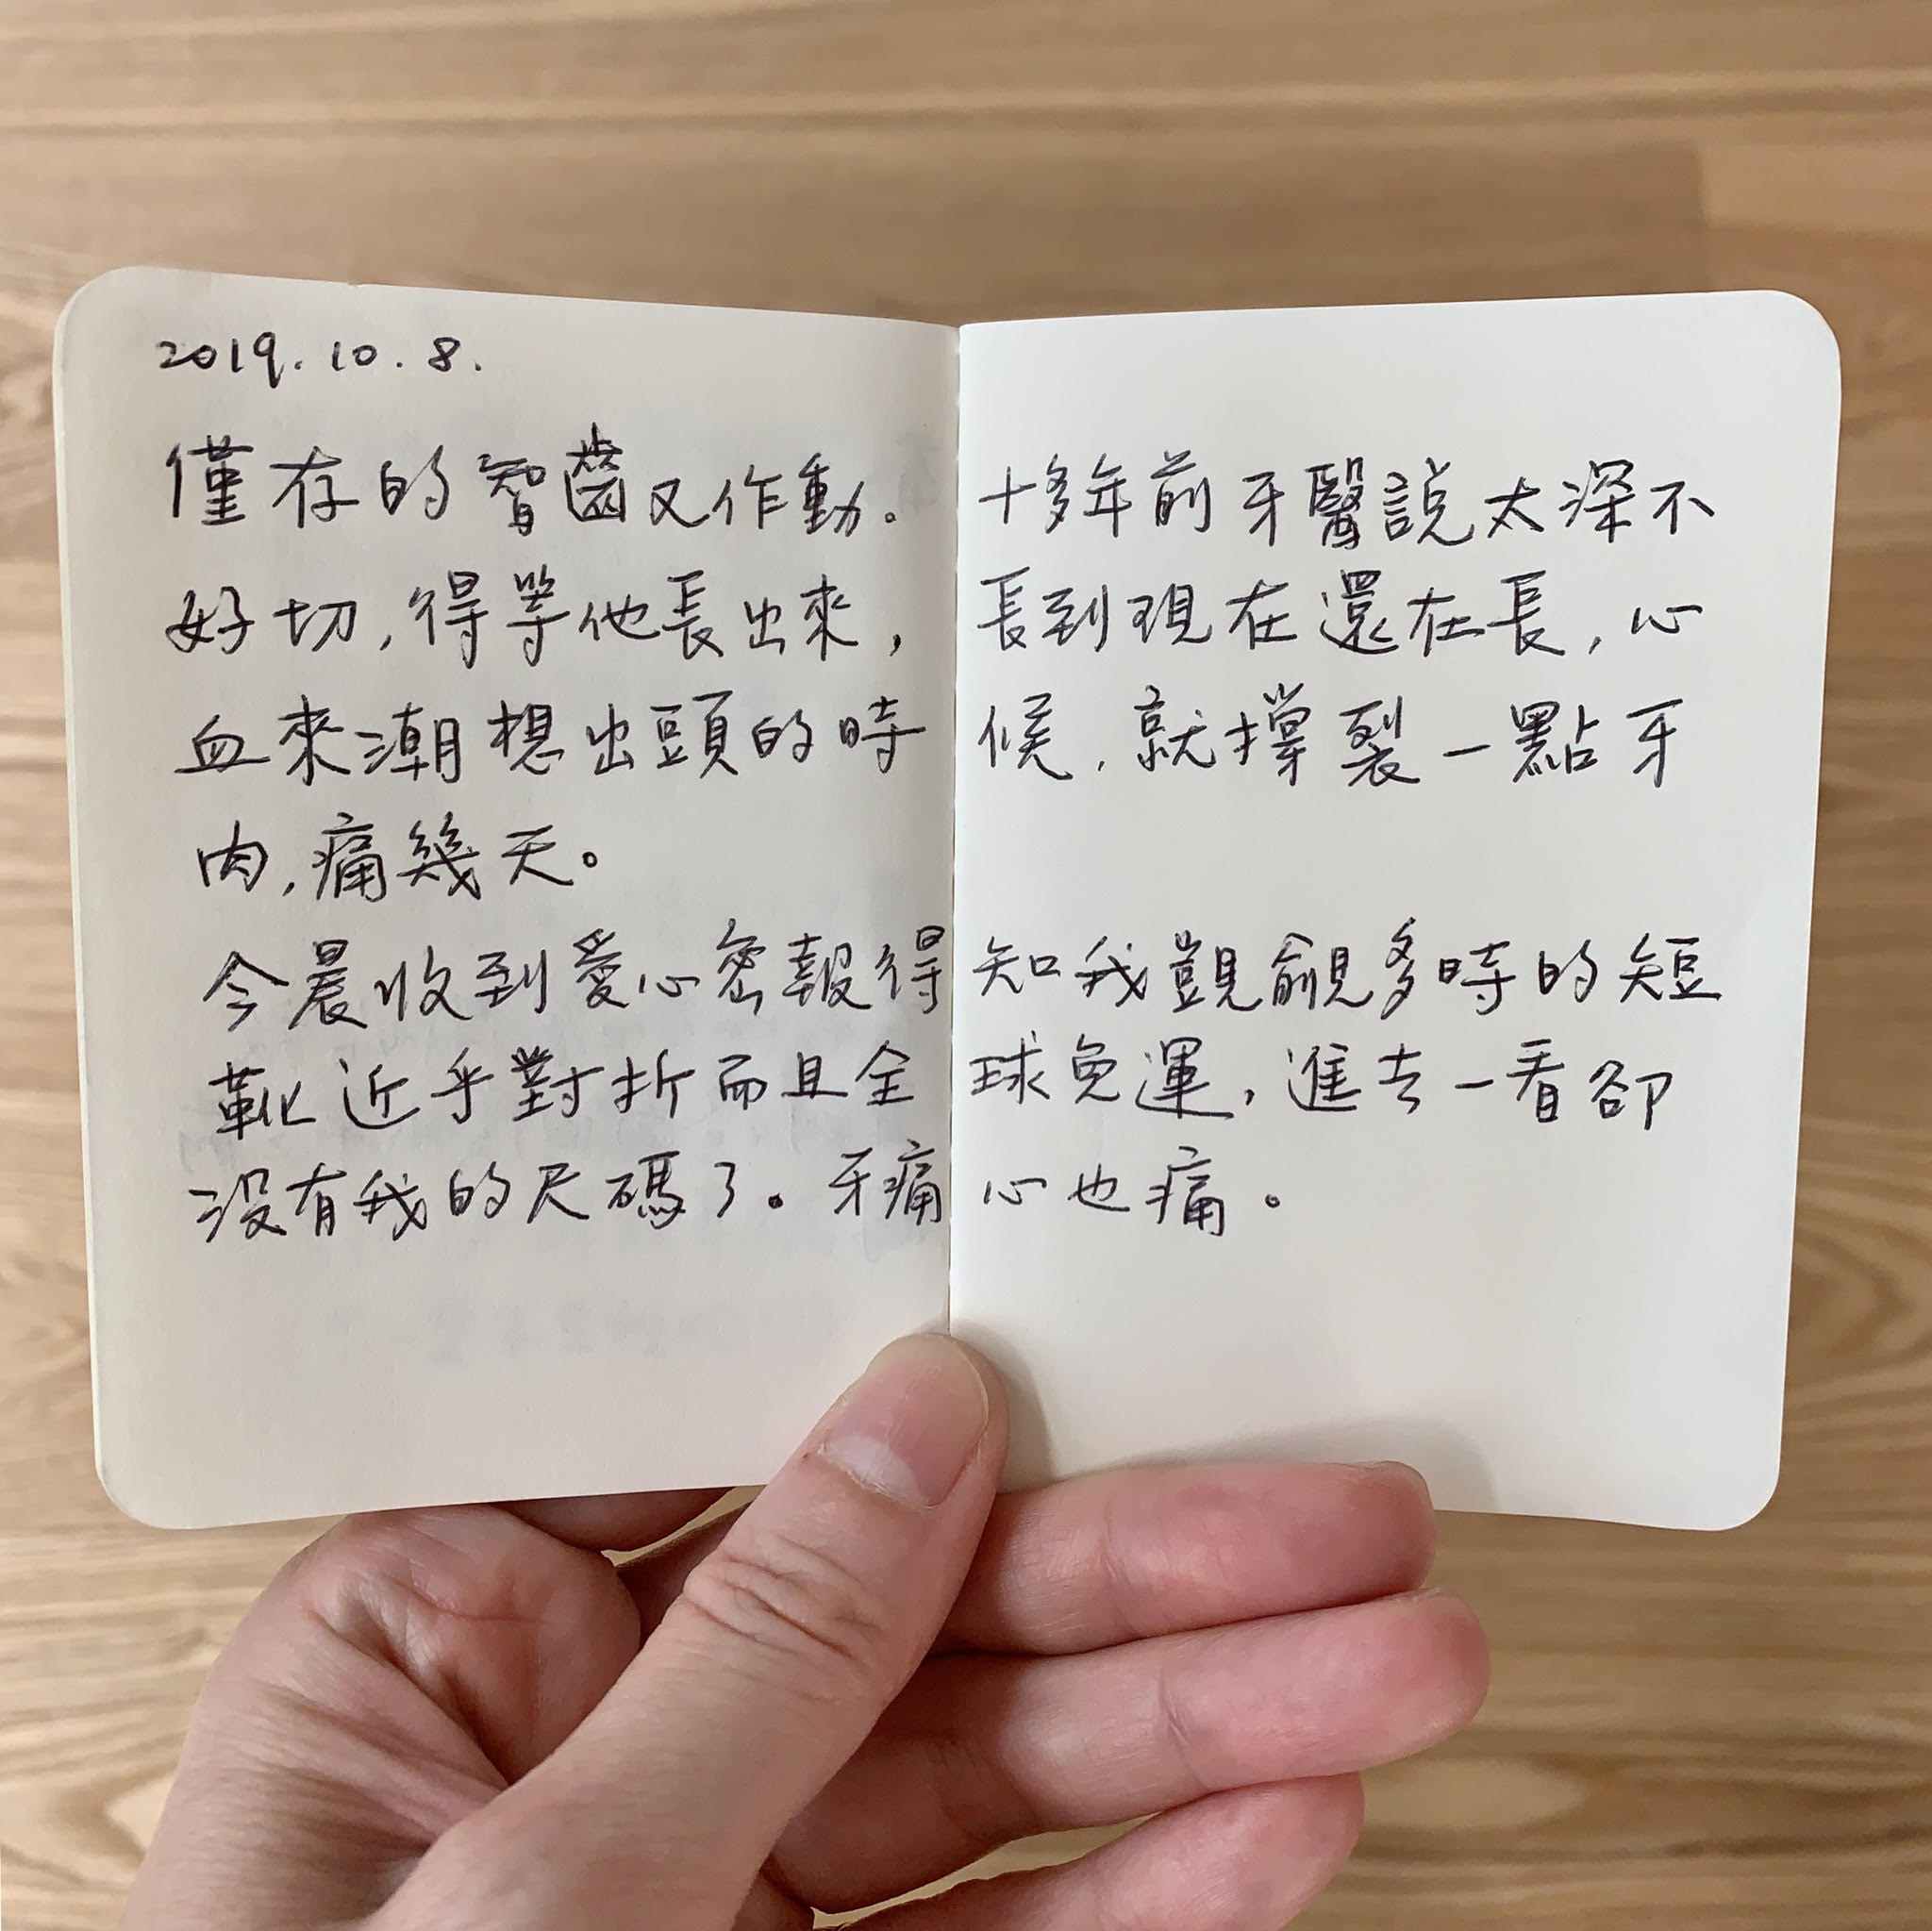 2019.10.8.
僅存的智齒又作動。十多年前牙醫說太深不
好切,得等他長出來,長到現在還在長,心
血來潮想出頭的時候,就撐裂一點牙
肉,痛幾天。
今晨收到愛心密報得知我覬覦多時的短
靴近乎對折而且全球免運,進去一看卻
沒有我的尺碼了。牙痛心也痛。